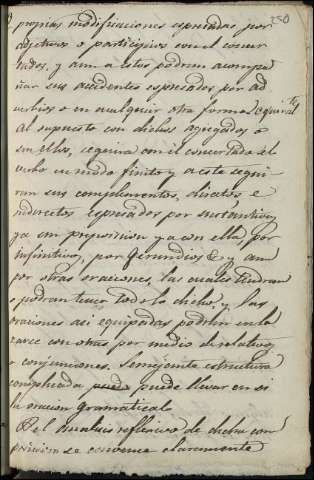 250
propias modificaciones espresadas por
adjetivos o participios con el concer
tados, y aun a estos podran acompa
ñar sus accidentes espresados por ad
verbios o en cualquier otra forma equivte
al supuesto con dichos agregados o
sin ellos, seguira con él concertado el
verbo en modo finito y a este segui
ran sus complementos, directos e
indirectos espresados por sustantivos,
ya sin preposicion ya con ella, por
infinitivos, por Gerundios &, y aun
por otras oraciones, las cuales tendran
o podran tener todo lo dicho, y las
oraciones asi equipadas podrán enla
zarse con otras por medio de relativos
o conjunciones. Semejante estructura
complicada puede llevar en si
la oracion gramatical.
Del analisis reflexivo de dicha com
posicion se convence claramente